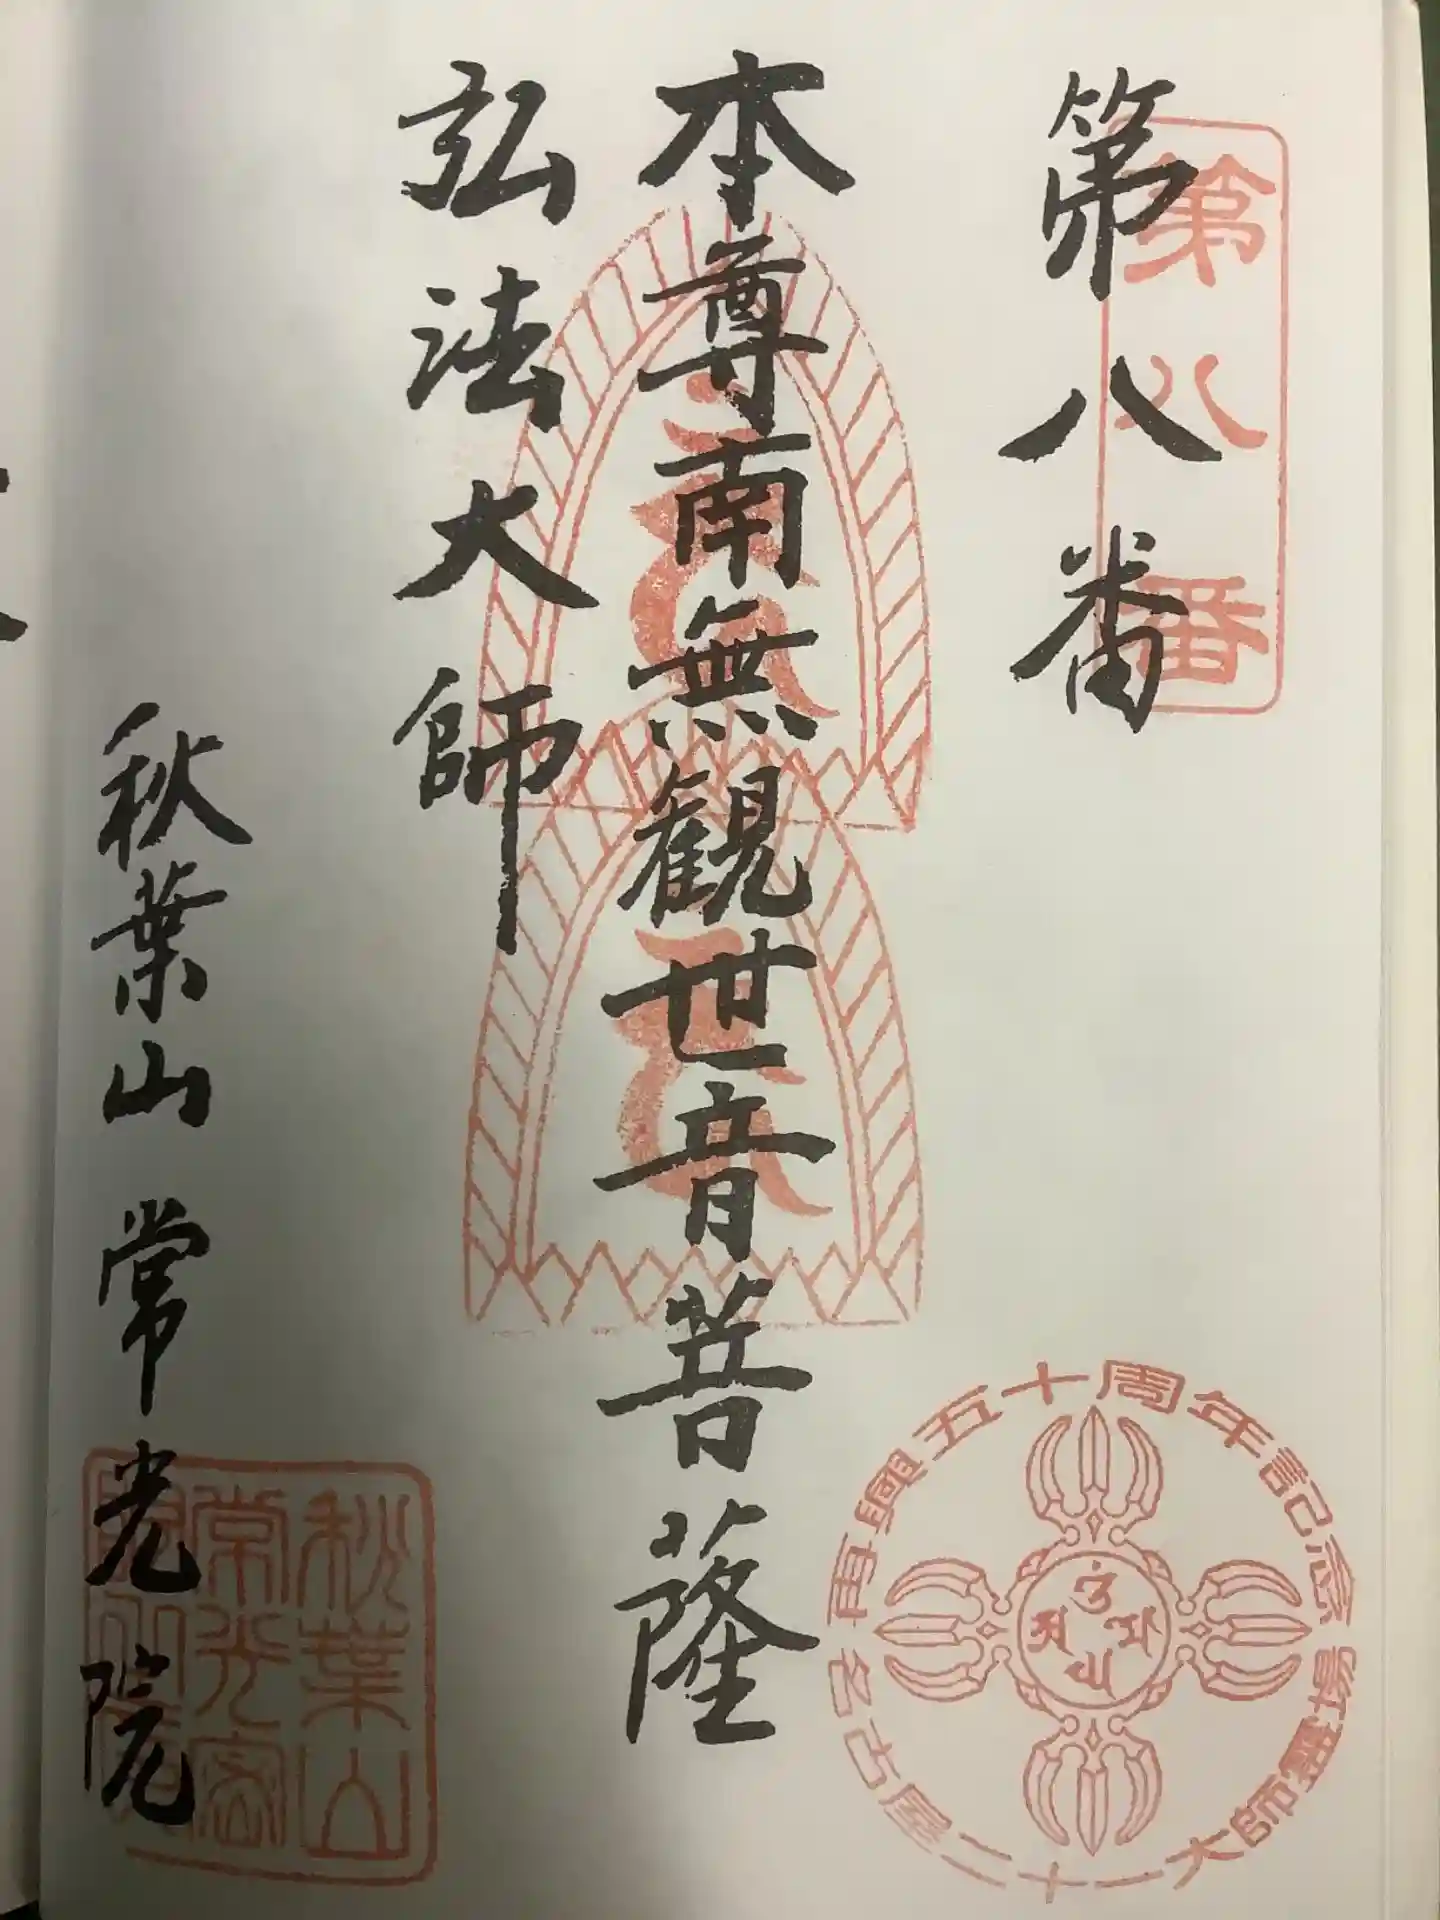 第八番
第八番
本尊南無観世音菩薩
弘法大師
秋葉山 常光院
再興五十周年記念
名古屋二十一大師霊場
秋葉山
常光密